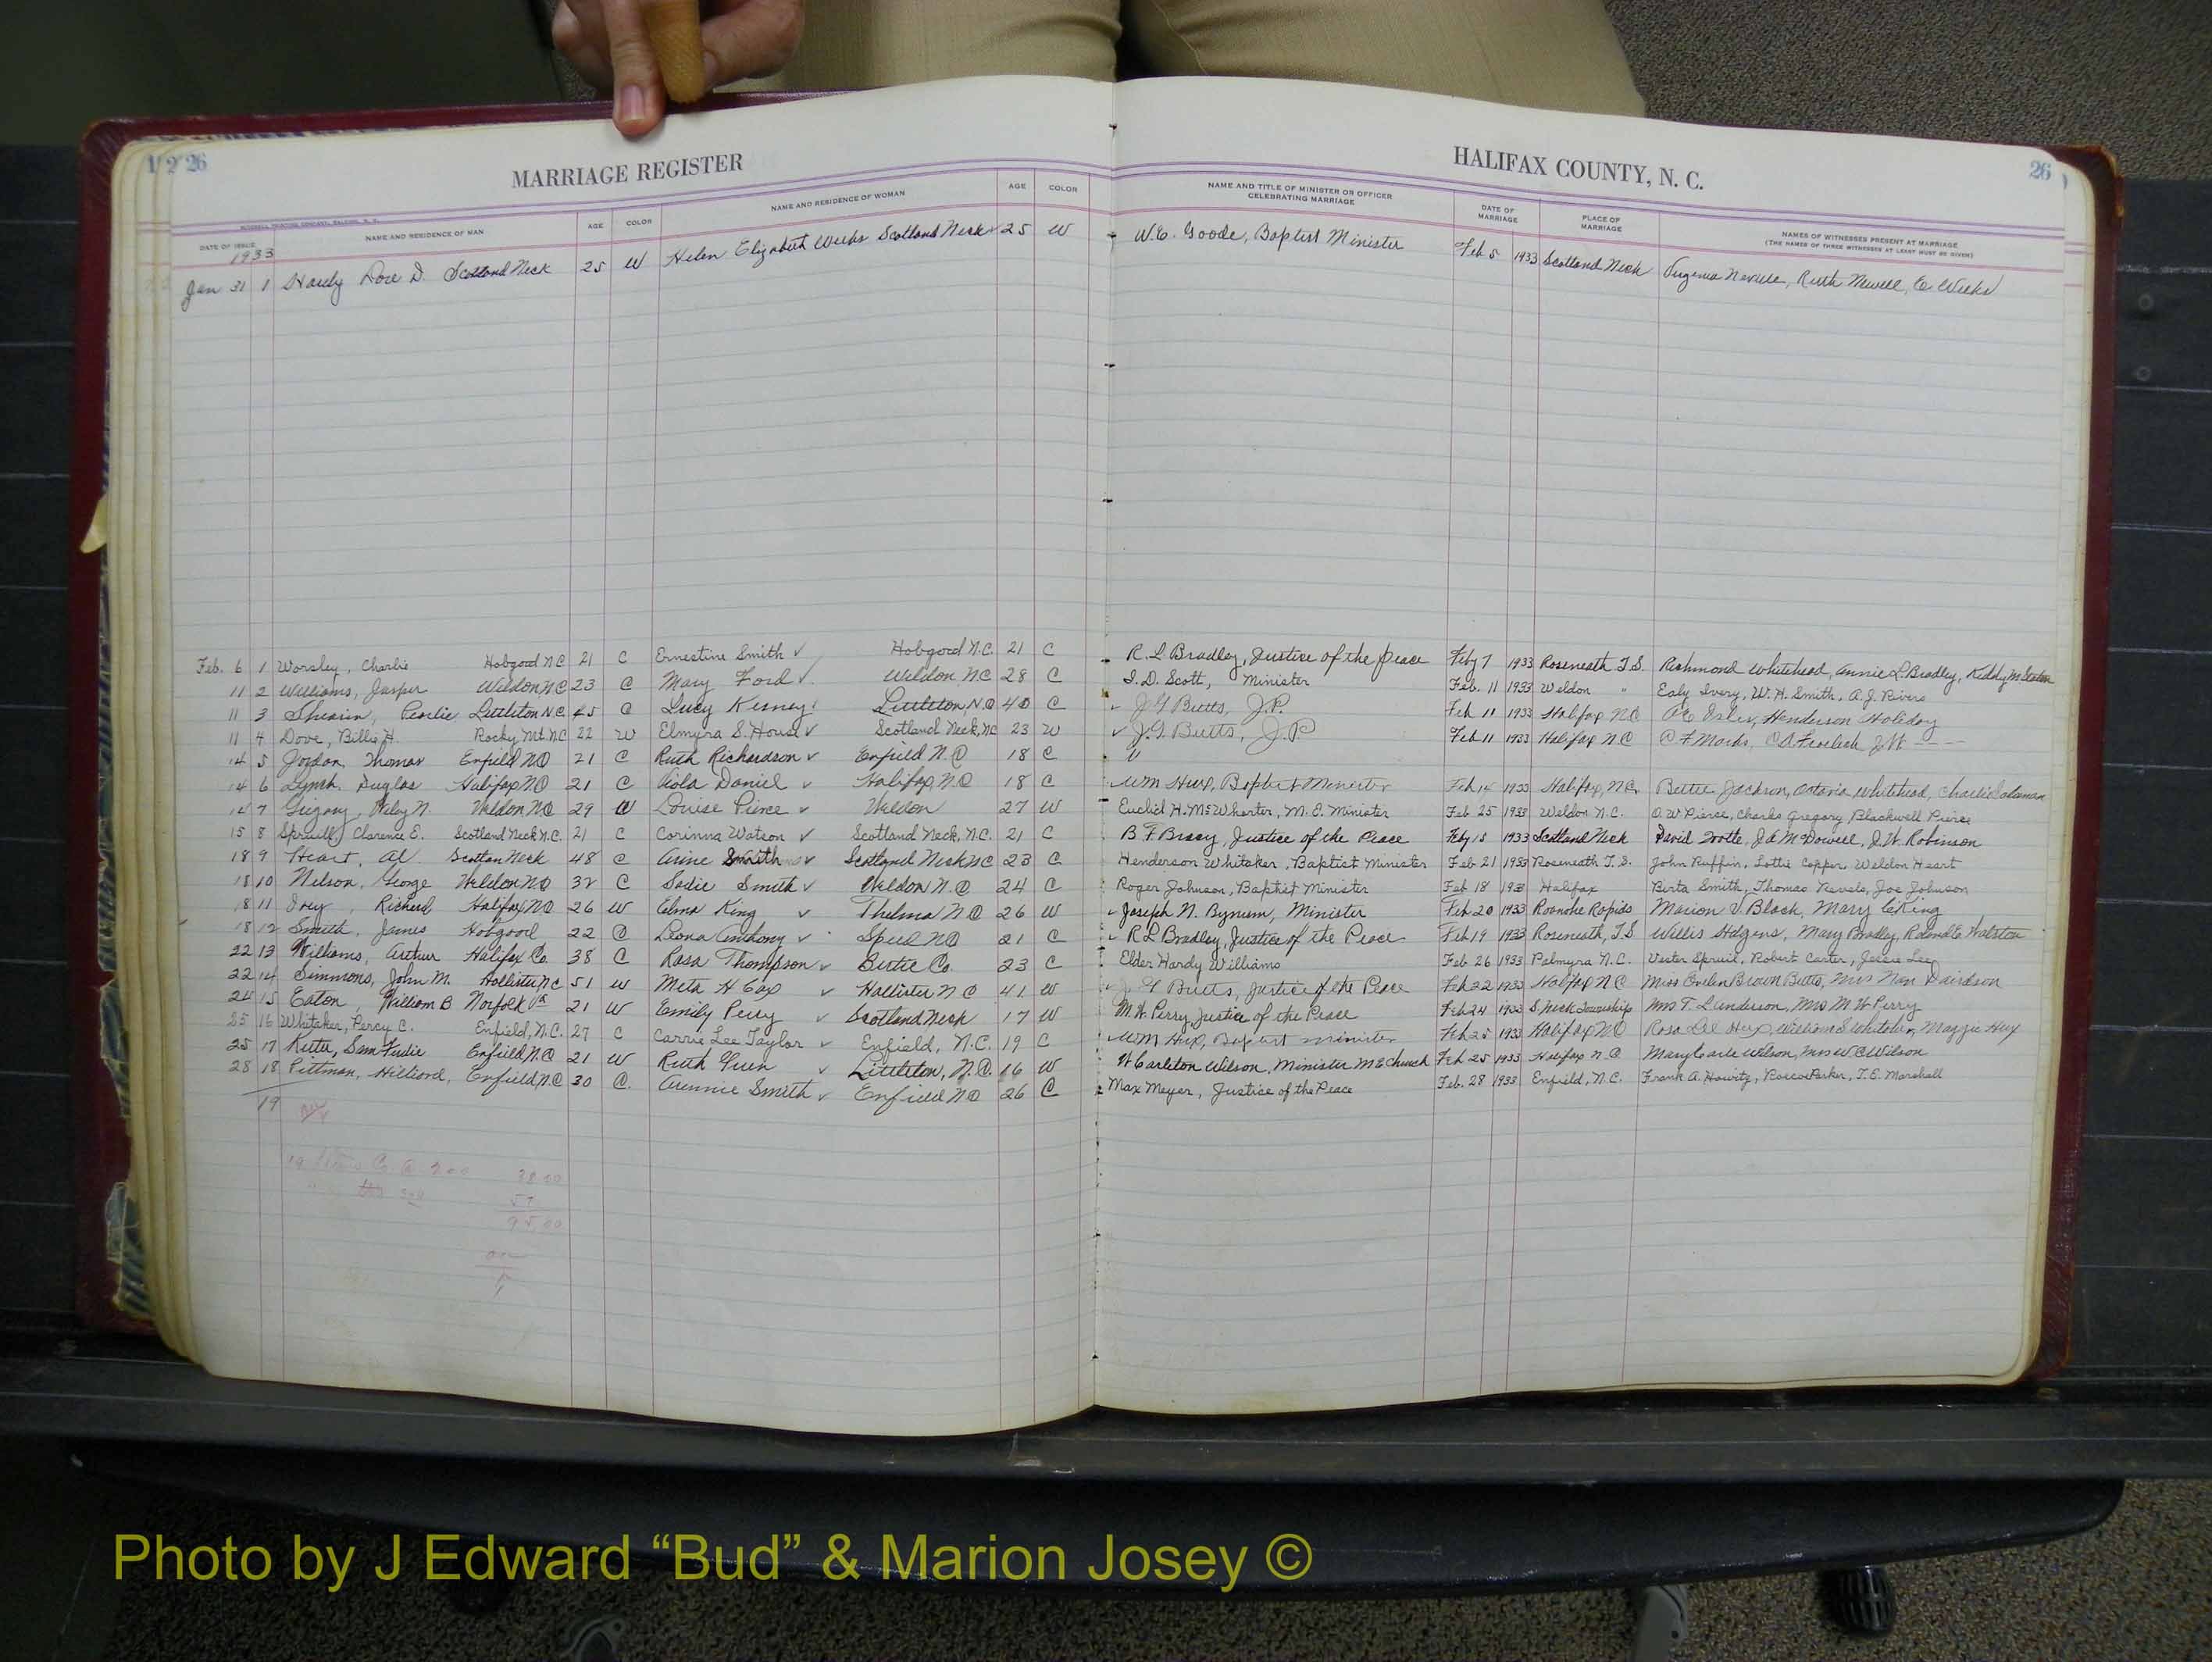 1 2 26
MARRIAGE REGISTER
HALIFAX COUNTY, N. C.
26
DATE OF ISSUE
NAME AND RESIDENCE OF MAN
AGE
COLOR
NAME AND RESIDENCE OF WOMAN
AGE
COLOR
NAME AND TITLE OF MINISTER OR OFFICER
CELEBRATING MARRIAGE
DATE OF
MARRIAGE
PLACE OF
MARRIAGE
NAMES OF WITNESSES PRESENT AT MARRIAGE
(THE NAMES OF THREE WITNESSES AT LEAST MUST BE GIVEN)
1933
Jan 31 1 Hardy D. Scotland Neck 25 W Helen Elizabeth Weeks Scotland Neck 25 W W.E. Goode, Baptist Minister Feb 5 1933 Scotland Neck Virginia Neville, Ruth Newell, E Weeks
Feb. 6 1 Worsley, Charlie Hobgood N.C 21 C Ernestine Smith ✓ Hobgood N.C. 21 C R. L Bradley, Justice of the peace Feby 7 1933 Roseneath T.S. Richmond Whitehead, Annie L. Bradley,
11 2 Williams, Jasper Weldon NC 23 C Mary Ford ✓ Weldon NC 28 C I. D. Scott, Minister Feb. 11 1933 Weldon " Ealy Ivery, W. H. Smith, A. J. Rivers
11 3 Shearin, Pearlie Littleton N.C. 45 C Lucy Littleton N.C 40 C J G Butts, J.P. Feb 11 1933 Halifax NC Henderson Holiday
11 4 Dove, Billie H. Rocky Mt. N.C 22 W Elmyra S. House ✓ Scotland Neck, NC 23 W ✓ J. G Butts, J.P Feb 11 1933 Halifax NC C F Marks,
14 5 Jordan, Thomas Enfield NC 21 C Ruth Richardson ✓ Enfield N.C 18 C "
14 6 Lynch, Duglas Halifax NC 21 C Viola Daniel ✓ Halifax, N.C 18 C Wm Hux, Baptist Minister Feb 14 1933 Halifax, NC, Bettie Jackson, Octavia Whitehead, Charlie
14 7 Grigory, Wiley N. Weldon NC 29 W Louise Pierce ✓ Weldon 27 W Euclid H. McWhorter, M. E. Minister Feb 25 1933 Weldon N.C. O. W Pierce, Charles Gregory, Blackwell Pierce
15 8 Spruill, Clarence E. Scotland Neck N.C. 21 C Corinna Watson ✓ Scotland Neck, N.C. 21 C B F Bracy, Justice of the Peace Feby 15 1933 Scotland Neck David J.A. McDowell, J. W. Robinson
18 9 Heart, Al. Scotlan Neck 48 C Smith ✓ Scotland Neck NC 23 C Henderson Whitaker, Baptist Minister Feb 21 1933 Roseneath T.S. John Ruffin, Lottie Copper, Weldon Heart
18 10 Nelson, George Weldon NC 32 C Sadie Smith ✓ Weldon N.C 24 C Roger Johnson, Baptist Minister Feb 18 193 Halifax Berta Smith, Thomas Revels, Joe Johnson
18 11 Ivey, Richard Halifax NC 26 W Elma King ✓ Thelma N C 26 W Joseph N. Bynum, Minister Feb 20 1933 Roanoke Rapids Marion V Black, Mary C King
18 12 Smith, James Hobgood 22 C Leona Anthony ✓ Speed NC 21 C R L Bradley, Justice of the Peace Feb 19 1933 Roseneath, T.S Willis Hdgens, Mary Bradley, Roland C Walston
22 13 Williams, Arthur Halifax Co. 38 C Rosa Thompson ✓ Bertie Co. 23 C Elder Hardy Williams Feb 26 1933 Palmyra N.C. Vester Spruil, Robert Carter, Jessie Lee
22 14 Simmons, John M. Hollister NC 51 W Meta H Cox ✓ Hollister N C 41 W J G Butts, Justice of the Peace Feb 22 1933 Halifax N C Miss Evelen Brown Butts, Mrs Nan Davidson
24 15 Eaton, William B Norfolk Va 21 W Emily Perry ✓ Scotland Neck 17 W M. H. Perry, Justice of the Peace Feb 24 1933 S. Neck Township Mrs T. L Anderson, Mrs M H Perry
25 16 Whitaker, Percy C. Enfield, N.C. 27 C Carrie Lee Taylor ✓ Enfield, N.C. 19 C Wm Hux, Baptist minister Feb 25 1933 Halifax NC Rosa Lee Hux, William S Whitaker, Maggie Hux
25 17 Kitter, Sam Enfield N.C 21 W Ruth Green ✓ Littleton, N.C. 16 W H Carleton Wilson, Minister M E Church Feb 25 1933 Halifax N C Mary Carle Wilson, Mrs W C Wilson
28 18 Pittman, Hilliard, Enfield NC 30 C. Aunnie Smith ✓ Enfield NC 26 C Max Meyer, Justice of the Peace Feb. 28 1933 Enfield, N.C. Frank A. Howitz, Roscoe Parker, T. E. Marshall
19
38.00
57
95.00
Photo by J Edward “Bud” & Marion Josey ©